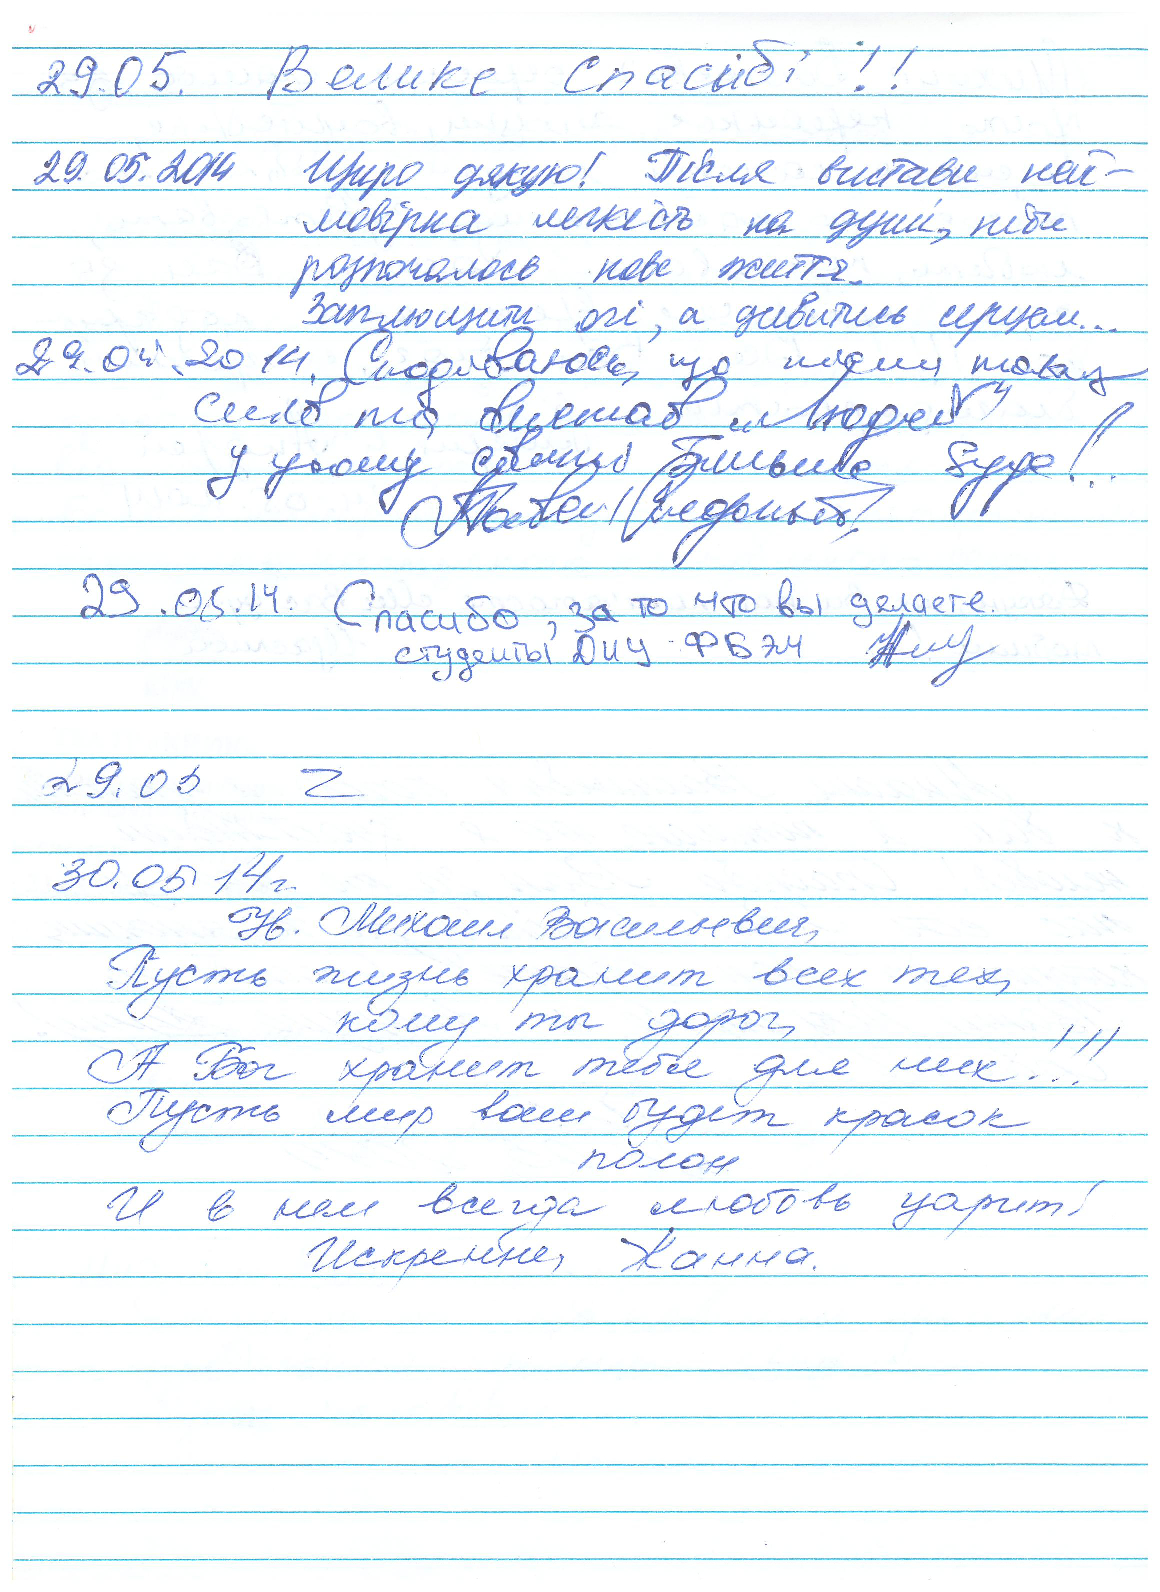 29.05. Велике спасибі!!
29.05.2014 Щиро дякую! Після вистави ней-
мовірна легкість на душі, ніби
розпочалось нове життя.
Заплющити очі, а дивитись серцем...
29.05.2014. Сподіваюсь, що після таких
слів та вистав людей
у усьому світі більше буде!...
Павел
29.05.14. Спасибо, за то что вы делаете.
студенты ДНУ ФБЭМ
29.05
30.05 14г.
Ув. Михаил Васильевич,
Пусть жизнь хранит всех тех,
кому ты дорог,
А Бог хранит тебя для них!!!
Пусть мир ваш будет красок
полон
И в нем всегда любовь царит!
Искренне, Жанна.